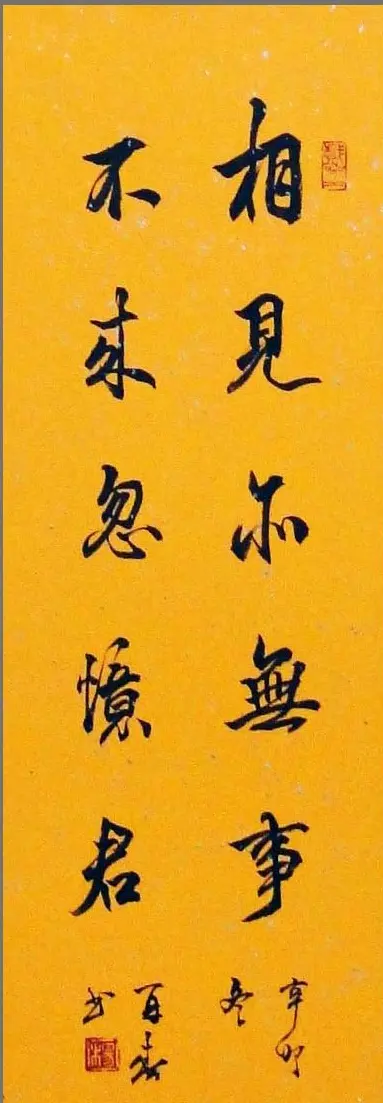 相見亦無事
不来忽憶君
辛卯
冬
百春
书